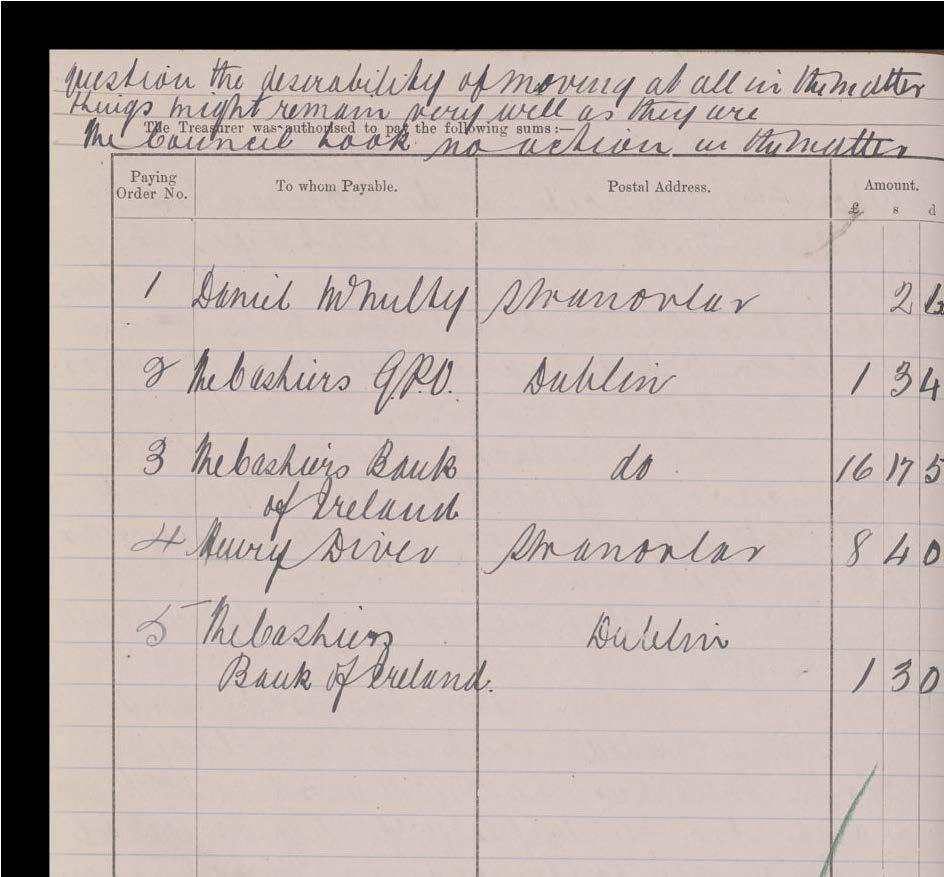 question the desirability of moving at all in the matter
things might remain very well as they are
The Treasurer was authorised to pay the following sums:—
The Council took no action in the matter
Paying Order No. To whom Payable. Postal Address. Amount.
£ s d
1 Daniel McNulty Stranorlar 2
2 The Cashiers G.P.O. Dublin 1 3 4
3 The Cashiers Bank do 16 17 5
of Ireland
4 Henry Diver Stranorlar 8 4 0
5 The Cashiers Dublin
Bank of Ireland. 1 3 0